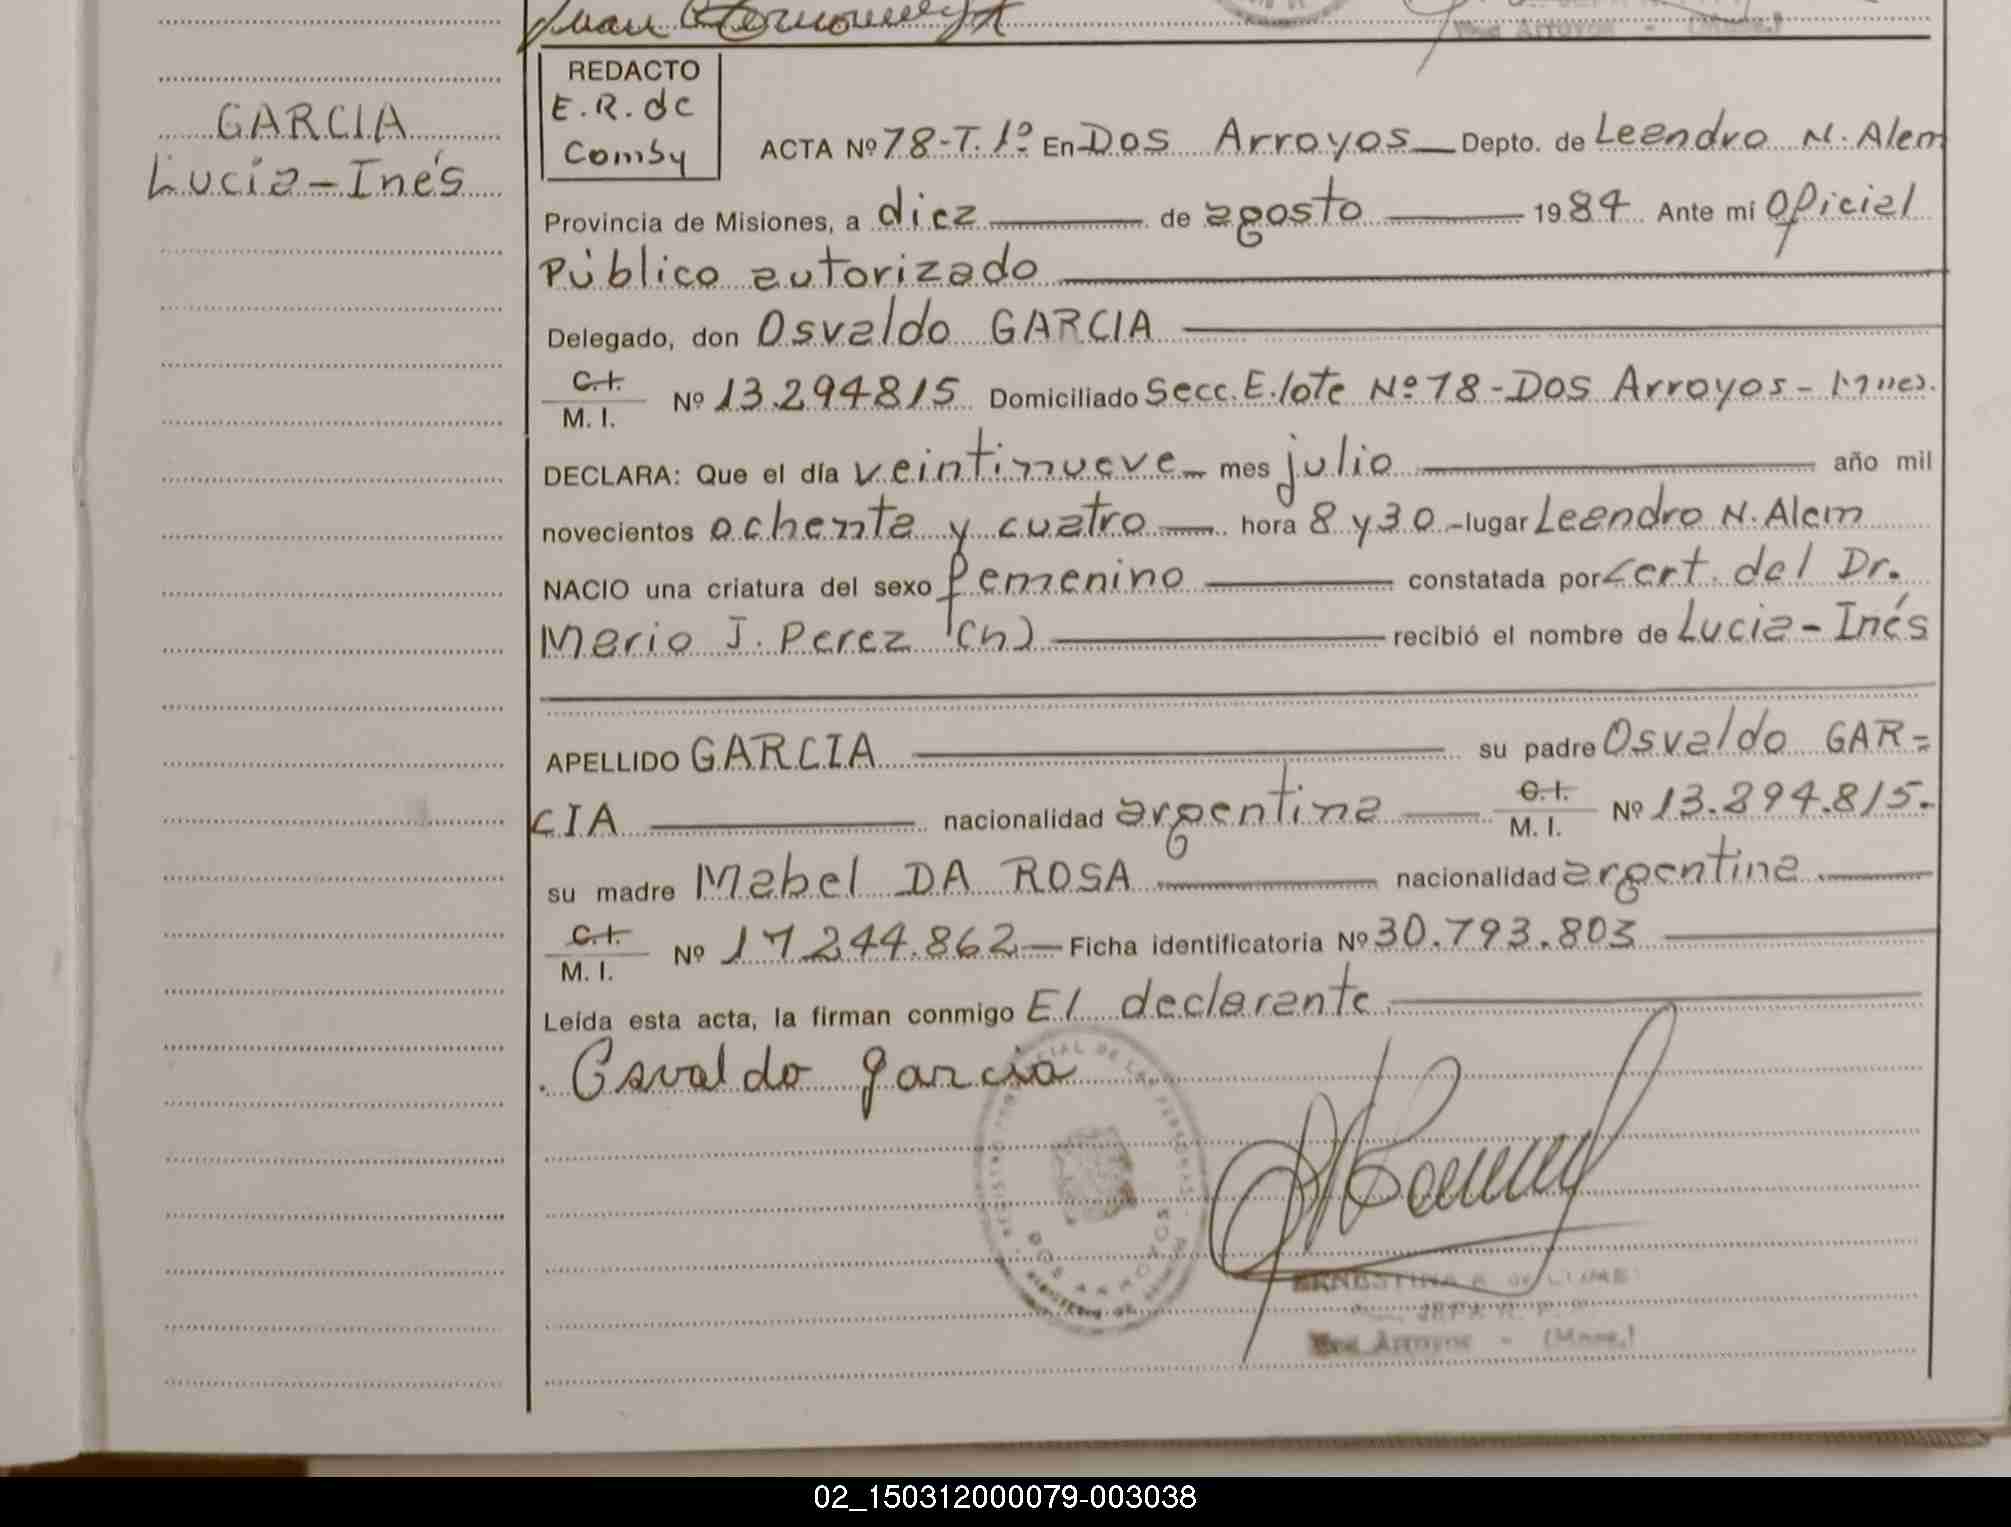 Juan
Dos Arroyos - (Mnes.)
GARCIA
Lucia-Inés
REDACTO
E.R. de
Comby
ACTA Nº 78-T.1º En Dos Arroyos Depto. de Leandro N. Alem
Provincia de Misiones, a diez de agosto 1984 Ante mí Oficial
Público autorizado
Delegado, don Osvaldo GARCIA
C.I.
M. I. Nº 13.294815 Domiciliado Secc. E. lote Nº 78-Dos Arroyos-Mnes.
DECLARA: Que el día veintinueve mes julio año mil
novecientos ochenta y cuatro hora 8 y 30 - lugar Leandro N. Alem
NACIO una criatura del sexo femenino constatada por Cert. del Dr.
Mario J. Perez (h) recibió el nombre de Lucia-Inés
APELLIDO GARCIA su padre Osvaldo GAR=
CIA nacionalidad argentina C.I.
M. I. Nº 13.294.815.
su madre Mabel DA ROSA nacionalidad argentina
C.I.
M. I. Nº 17.244.862 Ficha identificatoria Nº 30.793.803
Leída esta acta, la firman conmigo El declarante
Osvaldo garcia
REGISTRO PROVINCIAL DE LAS PERSONAS
DOS ARROYOS
ERNESTINA R. de
JEFA R. P.
Dos Arroyos - (Mnes.)
02_150312000079-003038